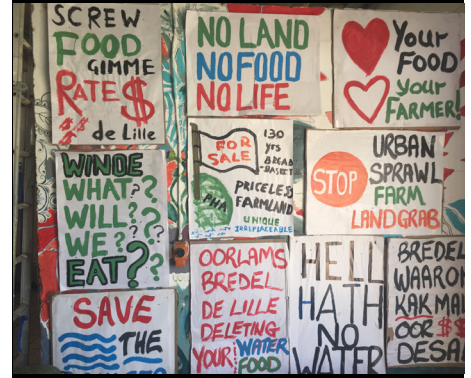 SCREW
FOOD
GIMME
RATE$
$$
$
de Lille
NO LAND
NO FOOD
NO LIFE
Your
FOOD
your
FARMER!
WINDE
WHAT??
WILL??
WE???
EAT??
FOR
SALE
130
yrs
BREAD
-BASKET
PRICELESS
FARMLAND
PHA
UNIQUE
IRREPLACEABLE
STOP
URBAN
SPRAWL
FARM
LANDGRAB
SAVE
THE
OORLAMS
BREDEL
DE LILLE
DELETING
YOUR WATER
FOOD
HELL
HATH
NO
WATER
BREDEL
WAARO
KAK MA
OOR $$
DESA